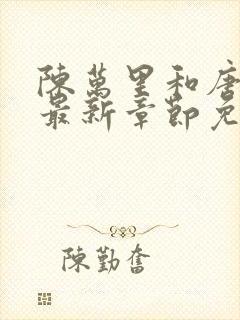 陳萬里和唐
最新章節免
陳勤奮